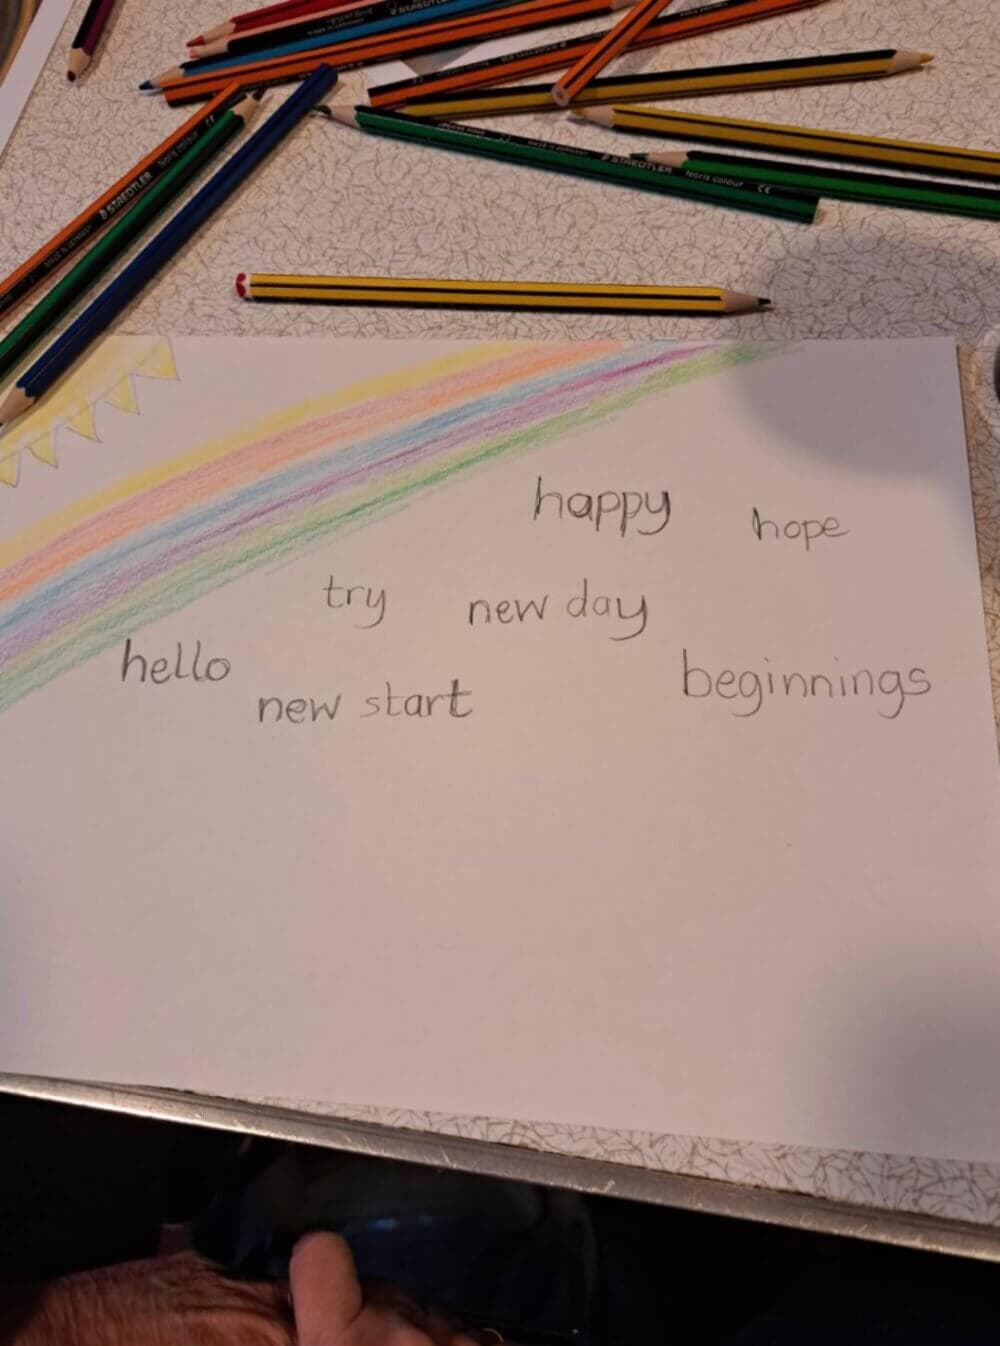 STAEDTLER
STAEDTLER Noris colour CE
STAEDTLER Noris colour
happy
hope
try
new day
hello
new start
beginnings